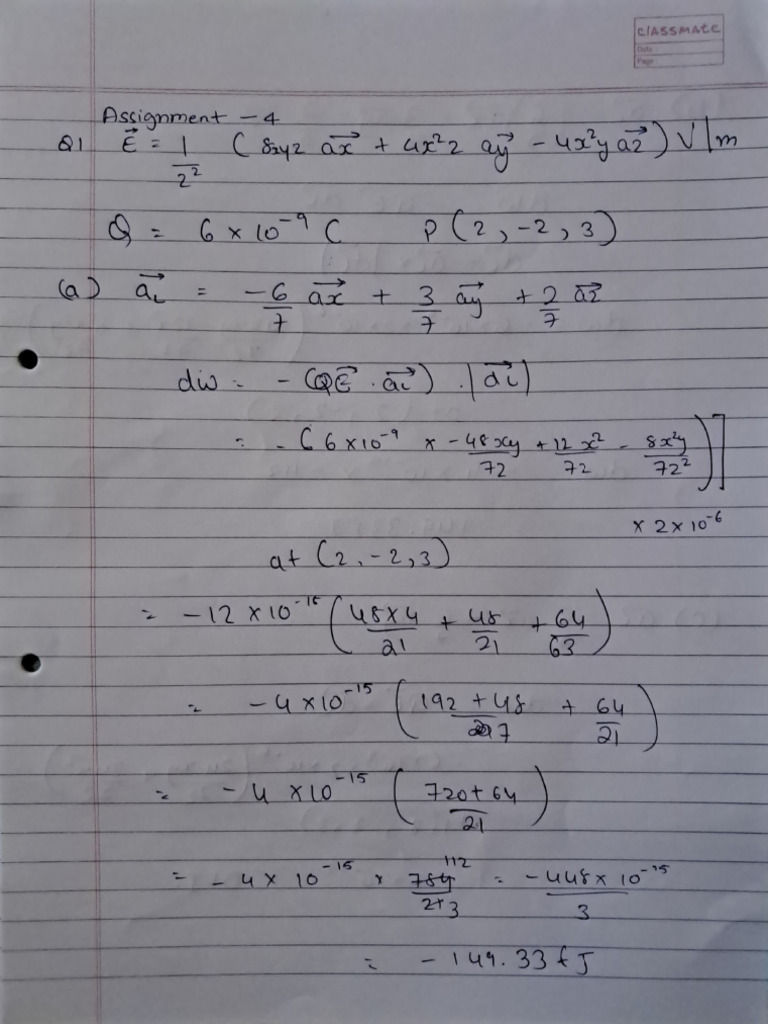 CLASSMATE
Date
Page
Assignment - 4
Q1 E⃗ = 1/z² (8xyz a⃗x + 4x²z a⃗y - 4x²y a⃗z) V/m
Q = 6 × 10⁻⁹ C P(2, -2, 3)
(a) a⃗L = -6/7 a⃗x + 3/7 a⃗y + 2/7 a⃗z
dw = - (QE⃗ . a⃗L) . |d⃗L|
= - (6×10⁻⁹ × -48xy/7z + 12x²/7z - 8x²y/7z²)]
× 2×10⁻⁶
at (2, -2, 3)
= -12 × 10⁻¹⁵ (48×4/21 + 48/21 + 64/63)
= -4 × 10⁻¹⁵ (192 + 48/7 + 64/21)
= -4 × 10⁻¹⁵ (720+64/21)
= -4 × 10⁻¹⁵ × 784 112/21 3 = -448 × 10⁻¹⁵/3
= -149.33 fJ